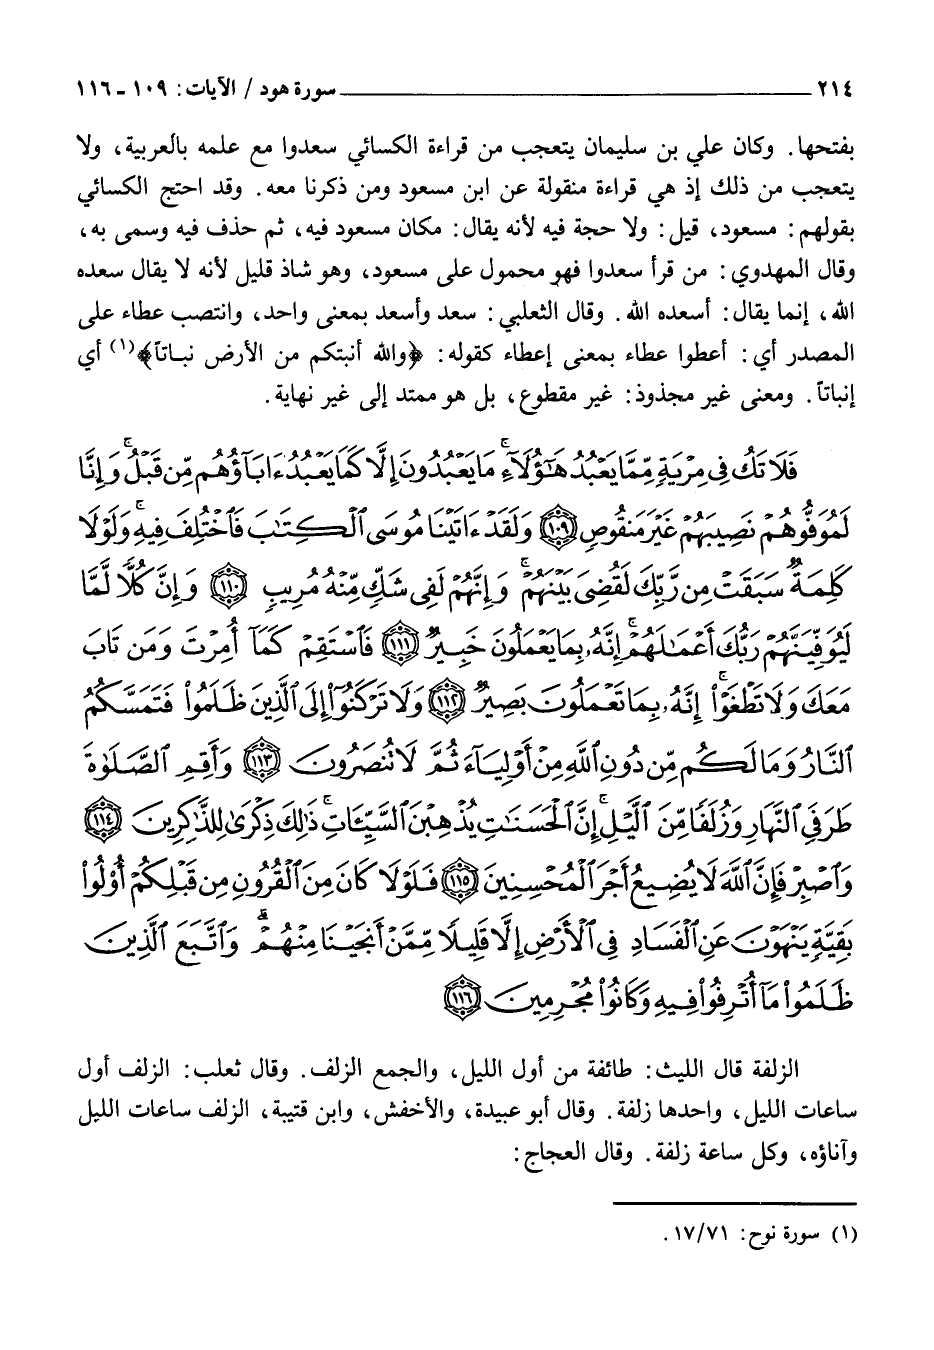 ٢١٤ سورة هود / الآيات: ١٠٩ - ١١٦
بفتحها. وكان علي بن سليمان يتعجب من قراءة الكسائي سعدوا مع علمه بالعربية، ولا
يتعجب من ذلك إذ هي قراءة منقولة عن ابن مسعود ومن ذكرنا معه. وقد احتج الكسائي
بقولهم: مسعود، قيل: ولا حجة فيه لأنه يقال: مكان مسعود فيه، ثم حذف فيه وسمى به،
وقال المهدوي: من قرأ سعدوا فهو محمول على مسعود، وهو شاذ قليل لأنه لا يقال سعده
الله، إنما يقال: أسعده الله. وقال الثعلبي: سعد وأسعد بمعنى واحد، وانتصب عطاء على
المصدر أي: أعطوا عطاء بمعنى إعطاء كقوله: ﴿والله أنبتكم من الأرض نباتاً﴾(١) أي
إنباتاً. ومعنى غير مجذوذ: غير مقطوع، بل هو ممتد إلى غير نهاية.
فَلَا تَكُ فِي مِرْيَةٍ مِّمَّا يَعْبُدُ هَٰٓؤُلَآءِ ۚ مَا يَعْبُدُونَ إِلَّا كَمَا يَعْبُدُ ءَابَآؤُهُم مِّن قَبْلُ ۚ وَإِنَّا
لَمُوَفُّوهُمْ نَصِيبَهُمْ غَيْرَ مَنقُوصٍ ١٠٩ وَلَقَدْ ءَاتَيْنَا مُوسَى ٱلْكِتَٰبَ فَٱخْتُلِفَ فِيهِ ۚ وَلَوْلَا
كَلِمَةٌ سَبَقَتْ مِن رَّبِّكَ لَقُضِىَ بَيْنَهُمْ ۚ وَإِنَّهُمْ لَفِى شَكٍّ مِّنْهُ مُرِيبٍ ١١٠ وَإِنَّ كُلًّا لَّمَّا
لَيُوَفِّيَنَّهُمْ رَبُّكَ أَعْمَٰلَهُمْ ۚ إِنَّهُۥ بِمَا يَعْمَلُونَ خَبِيرٌ ١١١ فَٱسْتَقِمْ كَمَآ أُمِرْتَ وَمَن تَابَ
مَعَكَ وَلَا تَطْغَوْا۟ ۚ إِنَّهُۥ بِمَا تَعْمَلُونَ بَصِيرٌ ١١٢ وَلَا تَرْكَنُوٓا۟ إِلَى ٱلَّذِينَ ظَلَمُوا۟ فَتَمَسَّكُمُ
ٱلنَّارُ وَمَا لَكُم مِّن دُونِ ٱللَّهِ مِنْ أَوْلِيَآءَ ثُمَّ لَا تُنصَرُونَ ١١٣ وَأَقِمِ ٱلصَّلَوٰةَ
طَرَفَىِ ٱلنَّهَارِ وَزُلَفًا مِّنَ ٱلَّيْلِ ۚ إِنَّ ٱلْحَسَنَٰتِ يُذْهِبْنَ ٱلسَّيِّـَٔاتِ ۚ ذَٰلِكَ ذِكْرَىٰ لِلذَّٰكِرِينَ ١١٤
وَٱصْبِرْ فَإِنَّ ٱللَّهَ لَا يُضِيعُ أَجْرَ ٱلْمُحْسِنِينَ ١١٥ فَلَوْلَا كَانَ مِنَ ٱلْقُرُونِ مِن قَبْلِكُمْ أُو۟لُوا۟
بَقِيَّةٍ يَنْهَوْنَ عَنِ ٱلْفَسَادِ فِى ٱلْأَرْضِ إِلَّا قَلِيلًا مِّمَّنْ أَنجَيْنَا مِنْهُمْ ۗ وَٱتَّبَعَ ٱلَّذِينَ
ظَلَمُوا۟ مَآ أُتْرِفُوا۟ فِيهِ وَكَانُوا۟ مُجْرِمِينَ ١١٦
الزلفة قال الليث: طائفة من أول الليل، والجمع الزلف. وقال ثعلب: الزلف أول
ساعات الليل، واحدها زلفة. وقال أبو عبيدة، والأخفش، وابن قتيبة، الزلف ساعات الليل
وآناؤه، وكل ساعة زلفة. وقال العجاج:
(١) سورة نوح: ١٧/٧١.